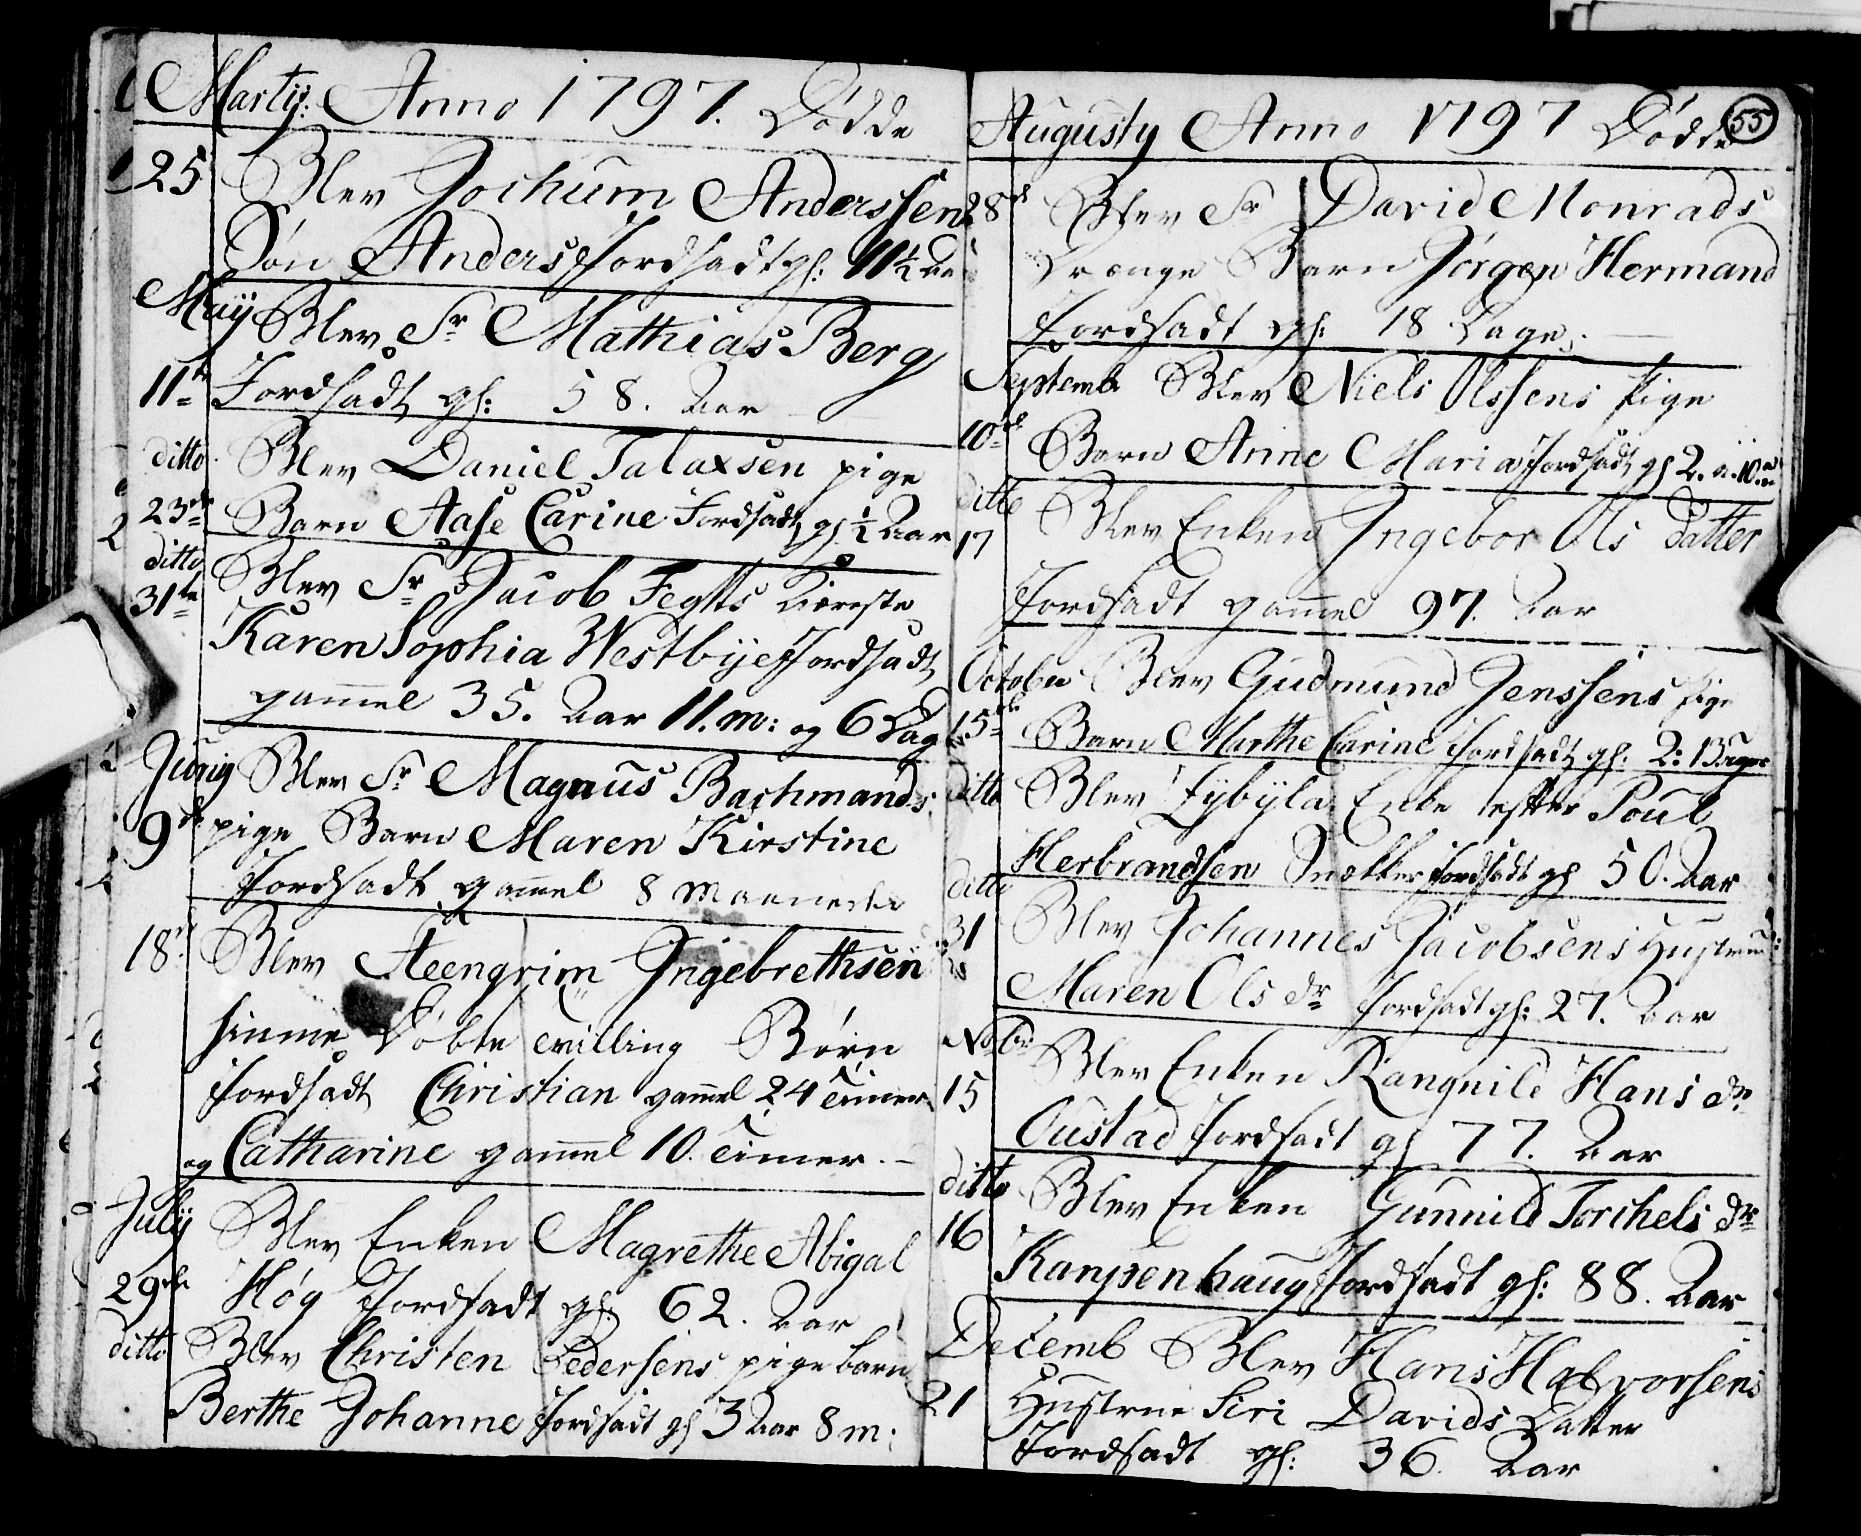 Martij: Anno 1797. Dödde
25 Blev Jochum Anderssen
Søn Anders Jordsadt gl: 11½ Aar
Maij Blev Sr Mathias Berg
11te Jordsadt gl: 58. Aar
ditto Blev Daniel Talaxsen pige
23de Barn Aase Carine Jordsadt gl ½ Aar
ditto Blev Sr Jacob Fegtts Kiereste
31te Karen Sophia Westbije Jordsadt
gam̄el 35. Aar 11. m: og 6 Dag
Junij Blev Sr Magnus Bachmands
9de pige Barn Maren Kirstine
Jordsadt gam̄el 8 Maaneder
18de Blev Steengrim Ingebrethsen
hiemme Døbte Tvilling Børn
Jordsadt Christian gam̄el 24 Timer
og Catharine gam̄el 10. Timer. –
Julij Blev Enken Magrethe Abigal
29de Høg Jordsadt gl: 62. Aar
ditto Blev Christen Pedersens pige barn
Berthe Johanne Jordsadt gl 3 Aar 8 m:
Augusty Anno 1797 Dødde 55
28de Blev Sr David Monrads
Drænge Barn Jørgen Hermand
Jordsadt gl: 18 Dage.
Septemb Blev Niels Olssens Pige
10de Barn Anne Maria Jordsadt gl 2. a. 10. m
ditto Blev Enken Ingebor Ols Datter
17 Jordsadt gam̄el 97. Aar
October Blev Gudmund Jenssens Pige
15de Barn Marthe Carine Jordsadt gl: 2:
ditto Blev Zybyla Enke efter Poul
Herbrandsen Snekker Jordsadt gl 50. Aar
ditto Blev Johannes Jacobsens Hustrue
31 Maren Ols dr Jordsadt gl: 27. Aar
Novbr Blev Enken Rangnild Hans dr
15 Oustad Jordsadt gl 77. Aar
ditto Blev Enken Gunnild Torchels dr
16 Kampenhaug Jordsadt gl: 88. Aar
Decemb Blev Hans Halvorsens
21 Hustrue Siri Davids Datter
Jordsadt gl: 36. Aar